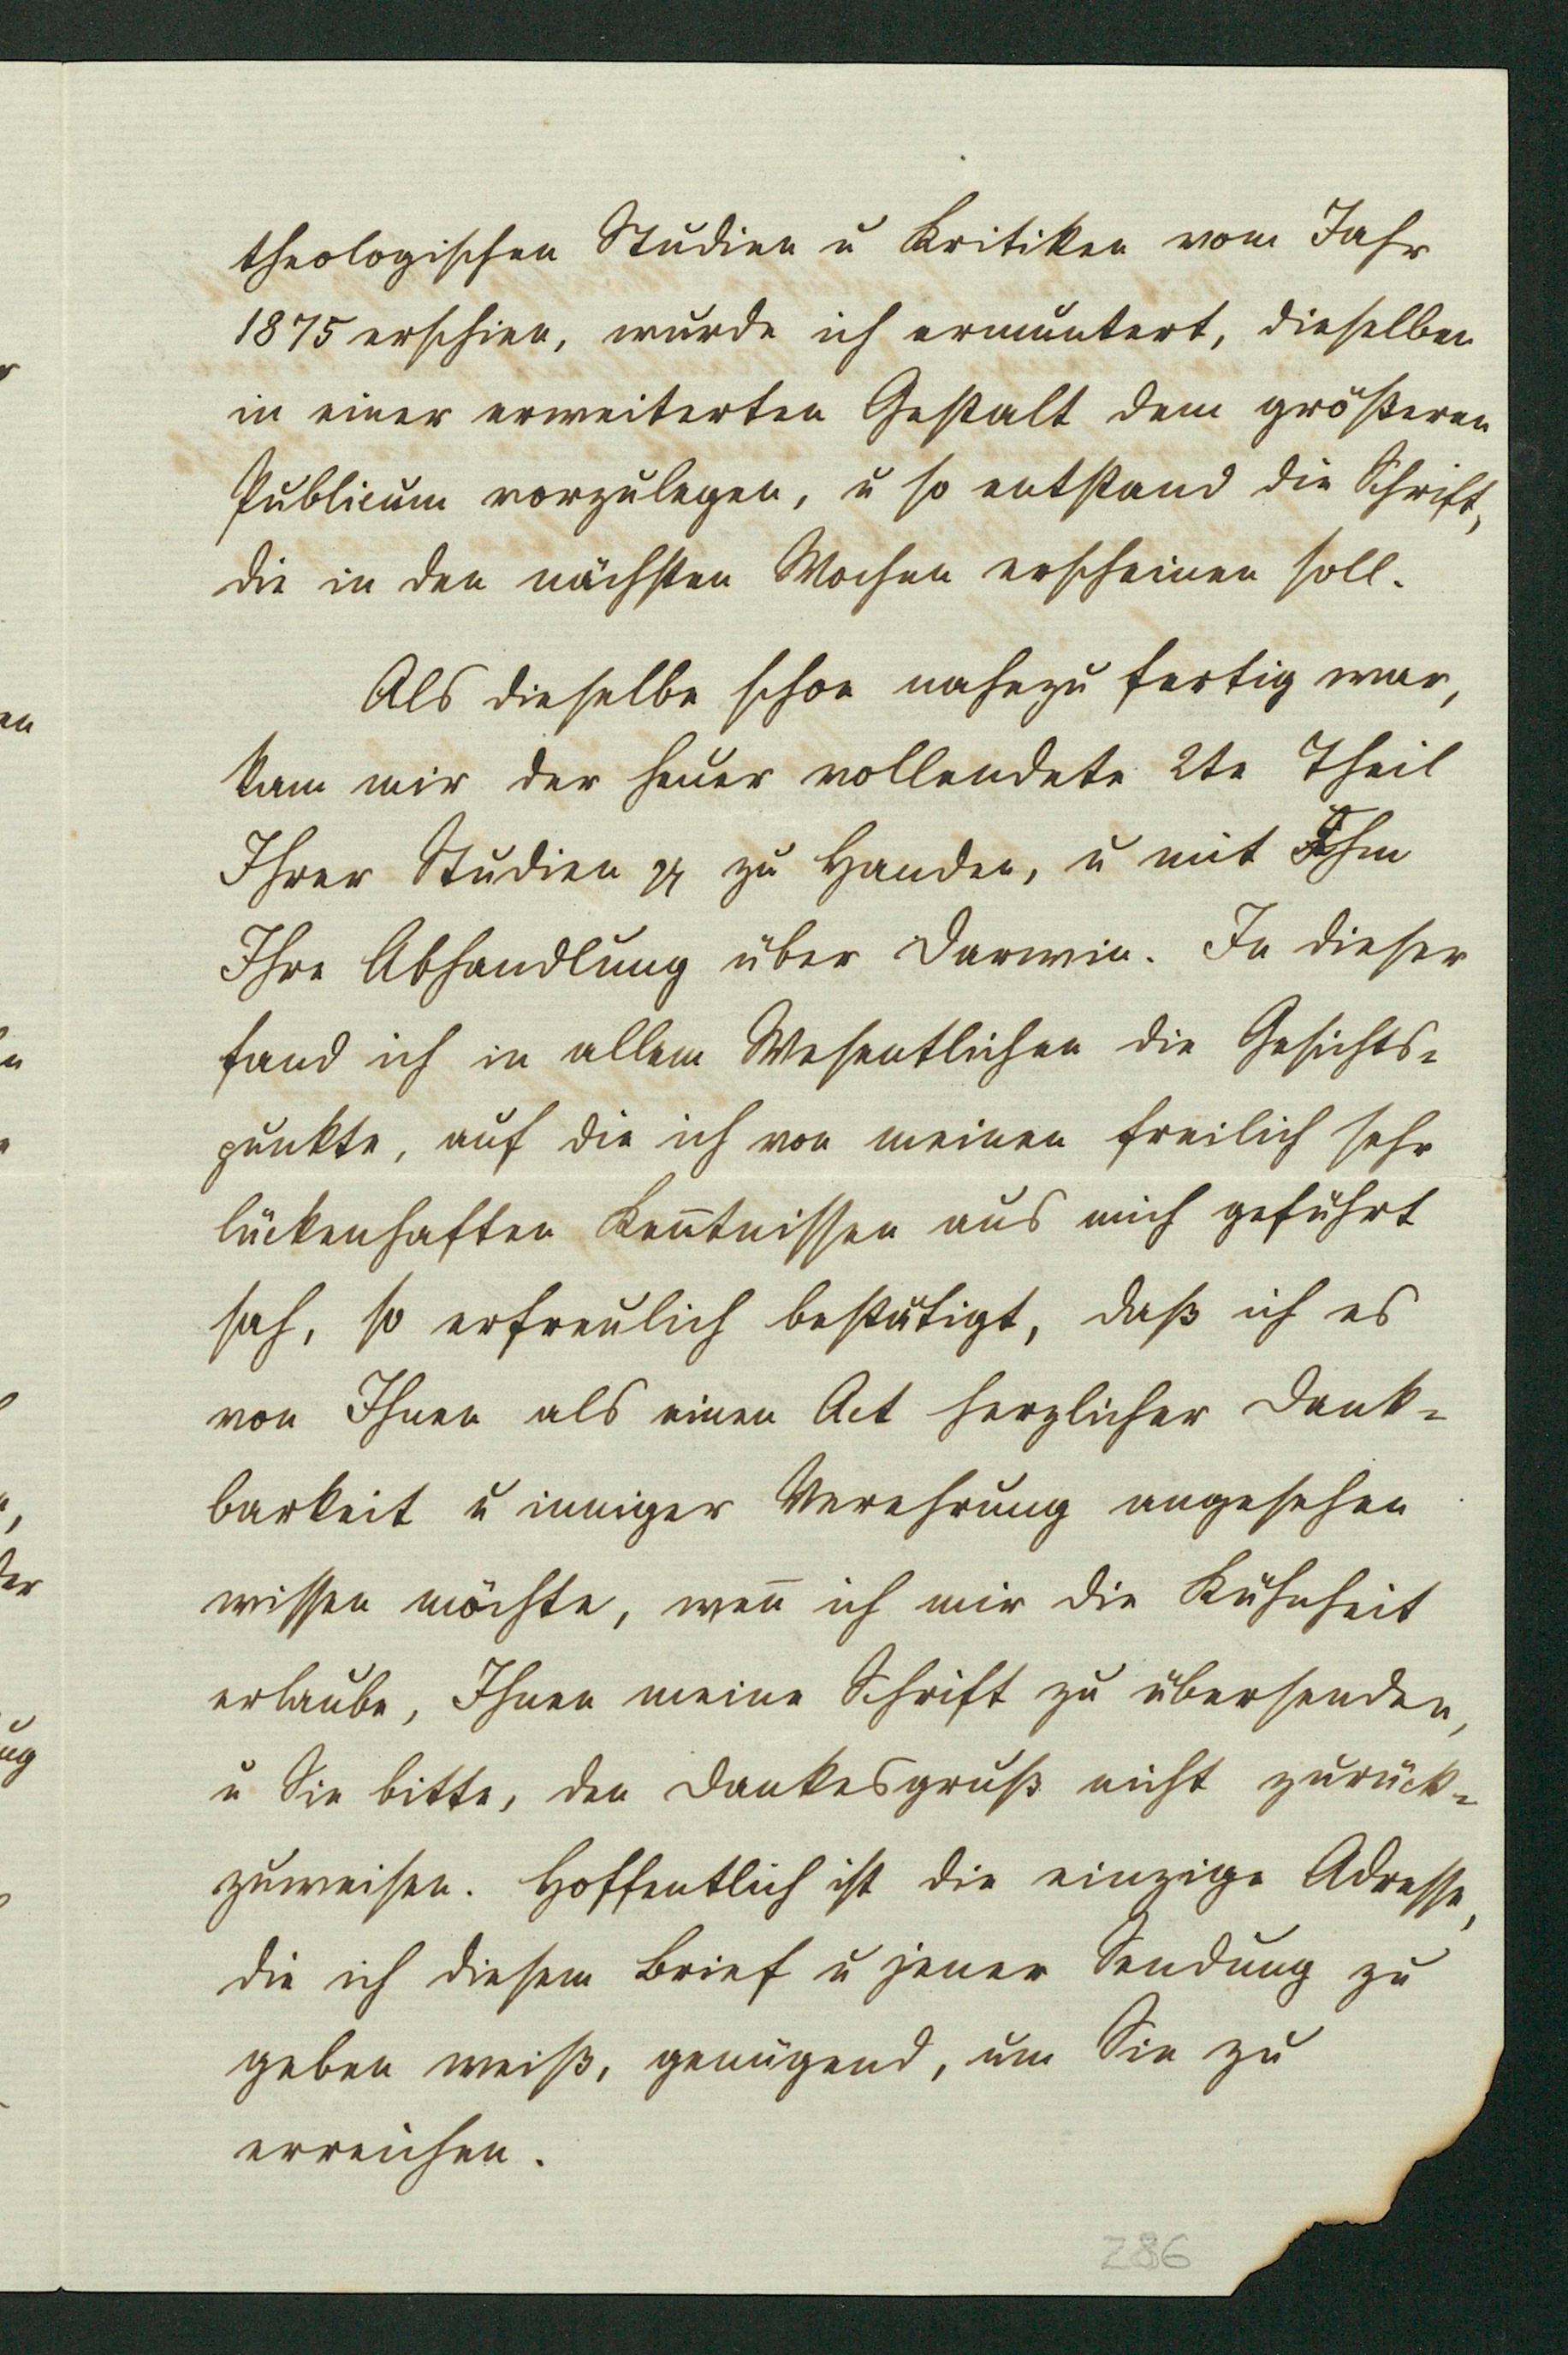 theologischen Studien u Kritiken vom Jahr
1875 erschien, wurde ich ermuntert, dieselben
in einer erweiterten Gestalt dem größeren
Publicum vorzulegen, u so entstand die Schrift,
die in den nächsten Wochen erscheinen soll.
Als dieselbe schon nahezu fertig war,
kam mir der heuer vollendete 2te Theil
Ihrer Studien zu Handen, u mit ihm
Ihre Abhandlung über Darwin. In dieser
fand ich in allem Wesentlichen die Gesichts-
punkte, auf die ich von meinen freilich sehr
lückenhaften Keñtnissen aus mich geführt
sah, so erfreulich bestätigt, daß ich es
von Ihnen als einen Act herzlicher Dank-
barkeit u inniger Verehrung angesehen
wissen möchte, weñ ich mir die Kühnheit
erlaube, Ihnen meine Schrift zu übersenden,
u Sie bitte, den Dankesgruß nicht zurück-
zuweisen. Hoffentlich ist die einzige Adresse,
die ich diesem Brief u jener Sendung zu
geben weiß, genügend, um Sie zu
erreichen.
286